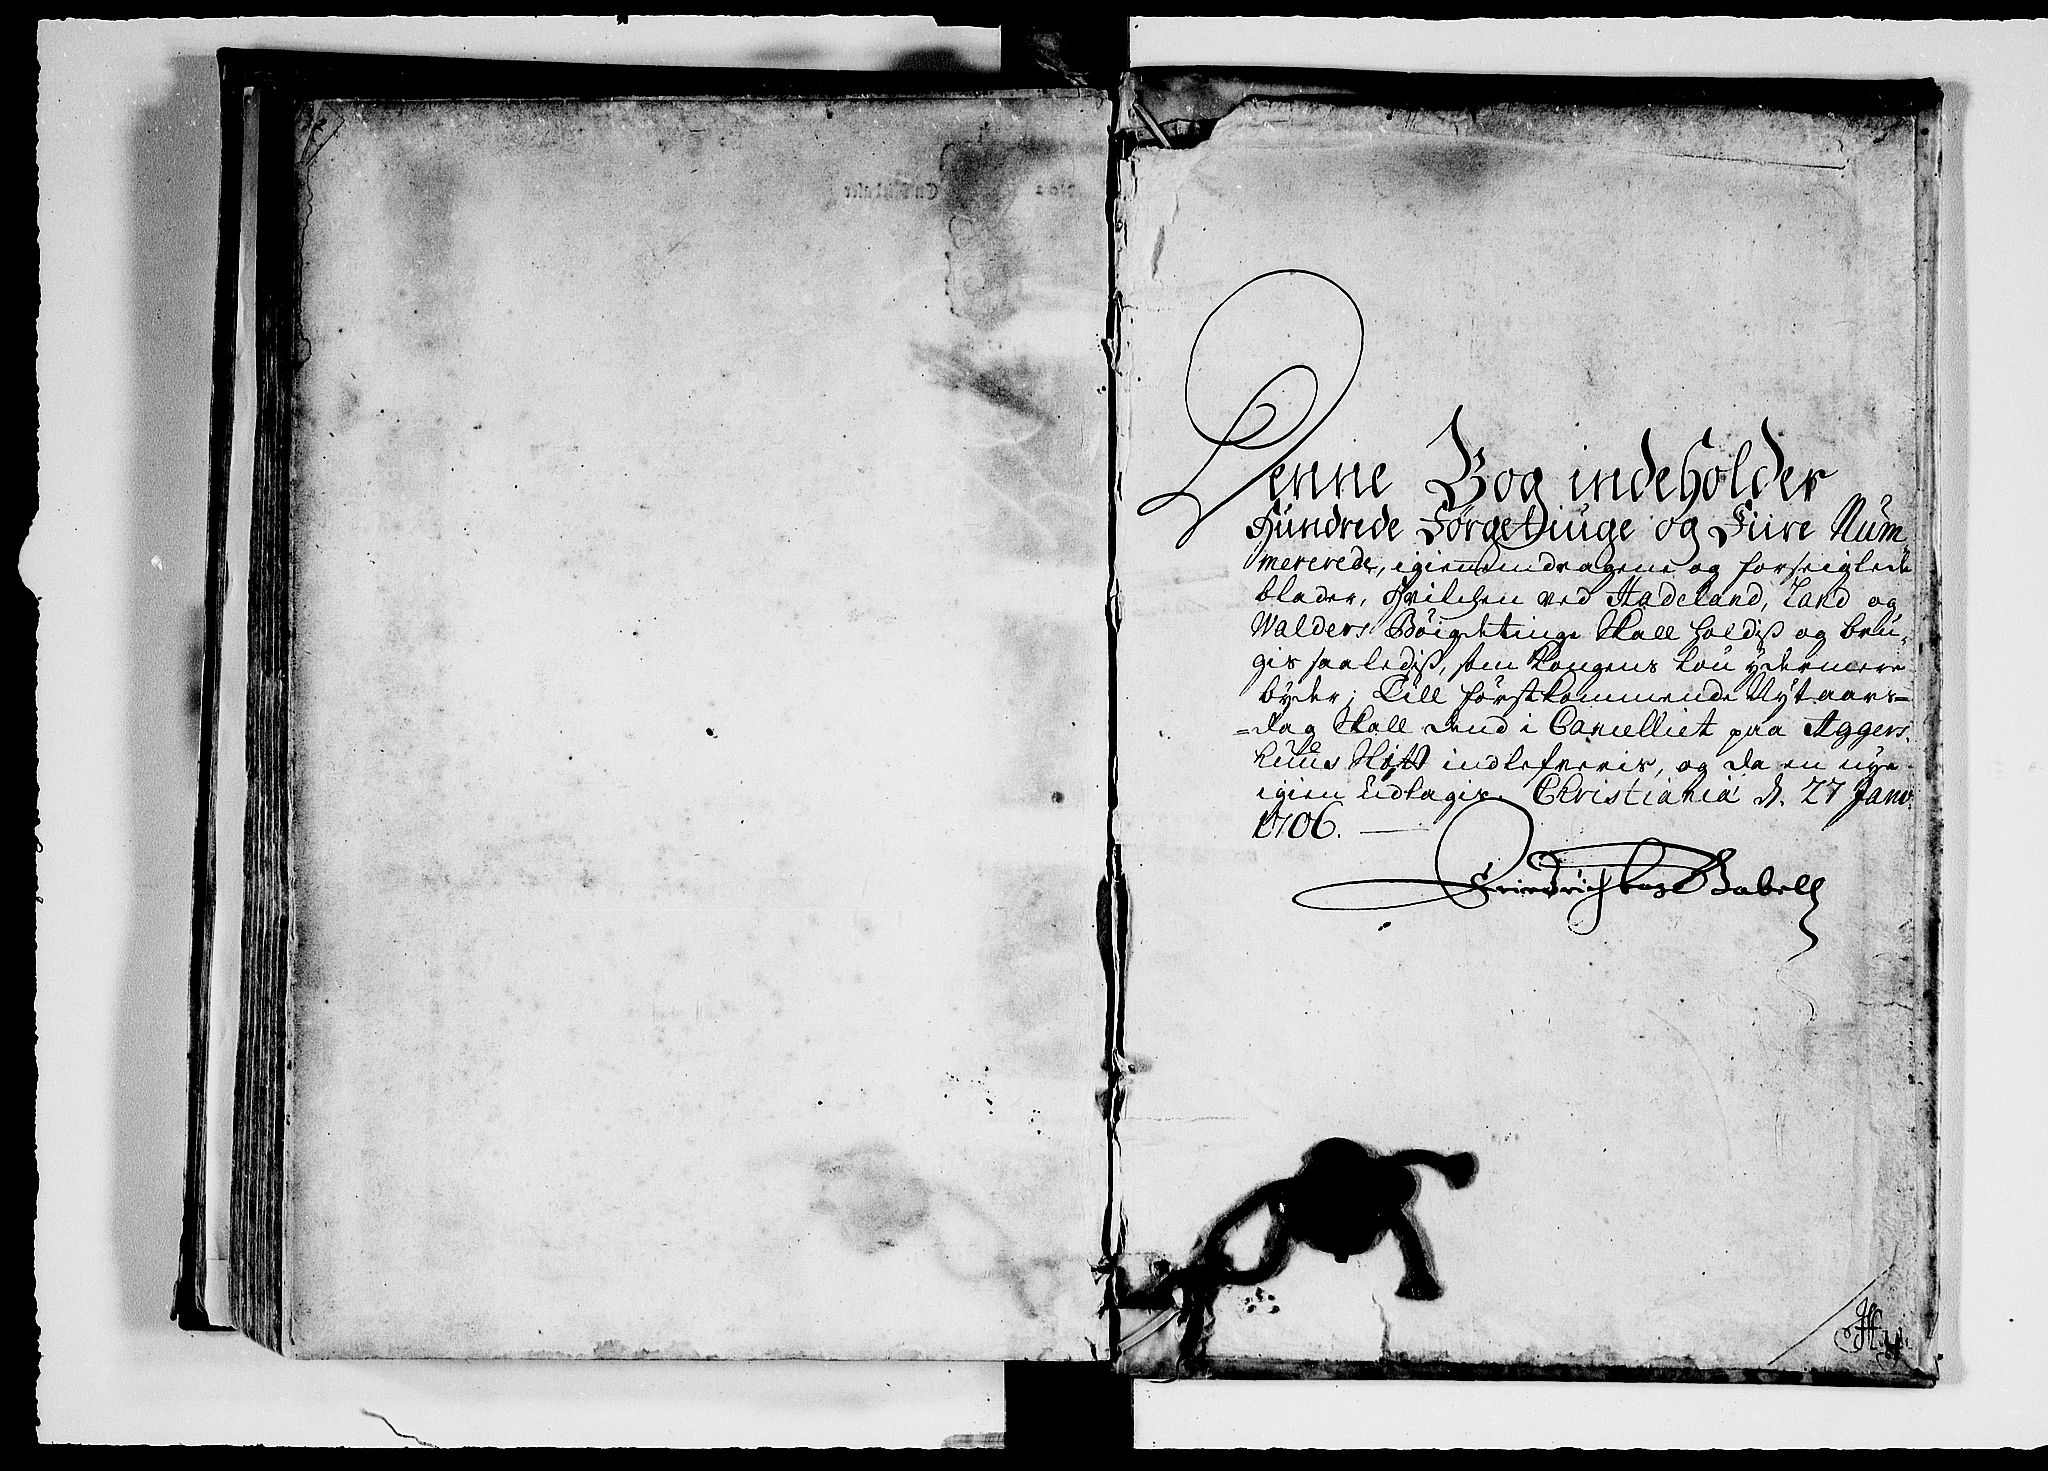 Denne Bog indeholder
Hundrede Førgetiuge og Fiire Num-
mererede, igiennemdragene og forseiglede
blader, Hvilchen ved Hadeland, Land og
Walders Böigdetinge skall holdis og bru-
gis saaledis, som Kongens Lou ydermere
byder; Till förstkommende Nytaars-
=dag skall dend i Cancelliet paa Aggers
huus Slott indlefveris, og da en nye
igien udtagis. Christiania d. 27 Janv:
1706.
Friedrich Gabell